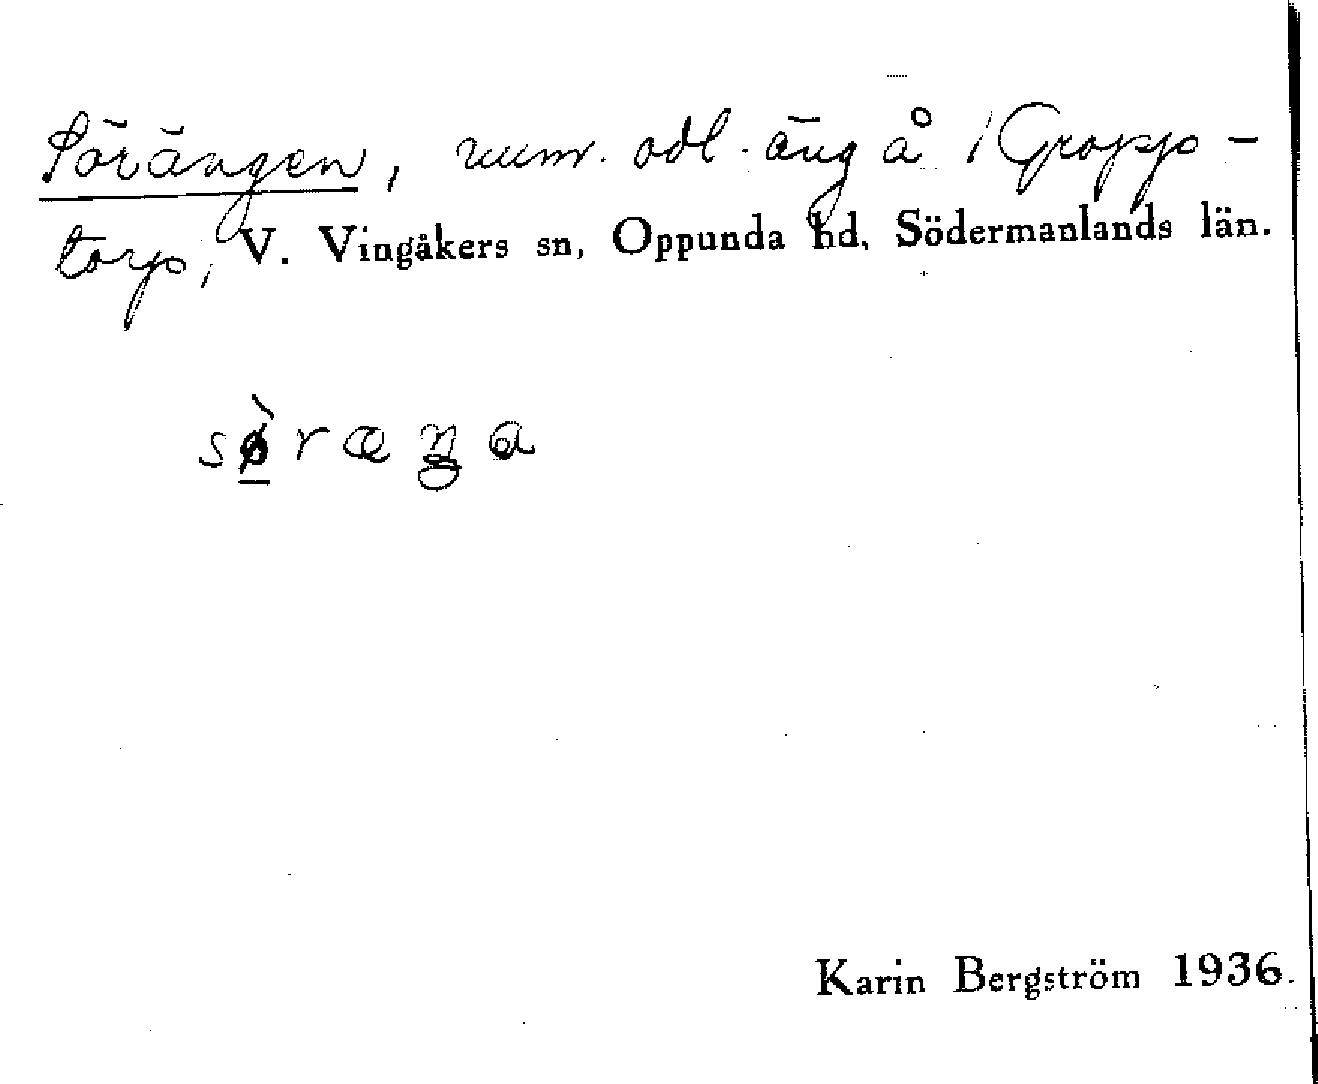 Sörängen, num. odl. äng å 1 Gropp-
torp, V. Vingåkers sn, Oppunda hd, Södermanlands län.
sø̀ræŋa
Karin Bergström 1936.